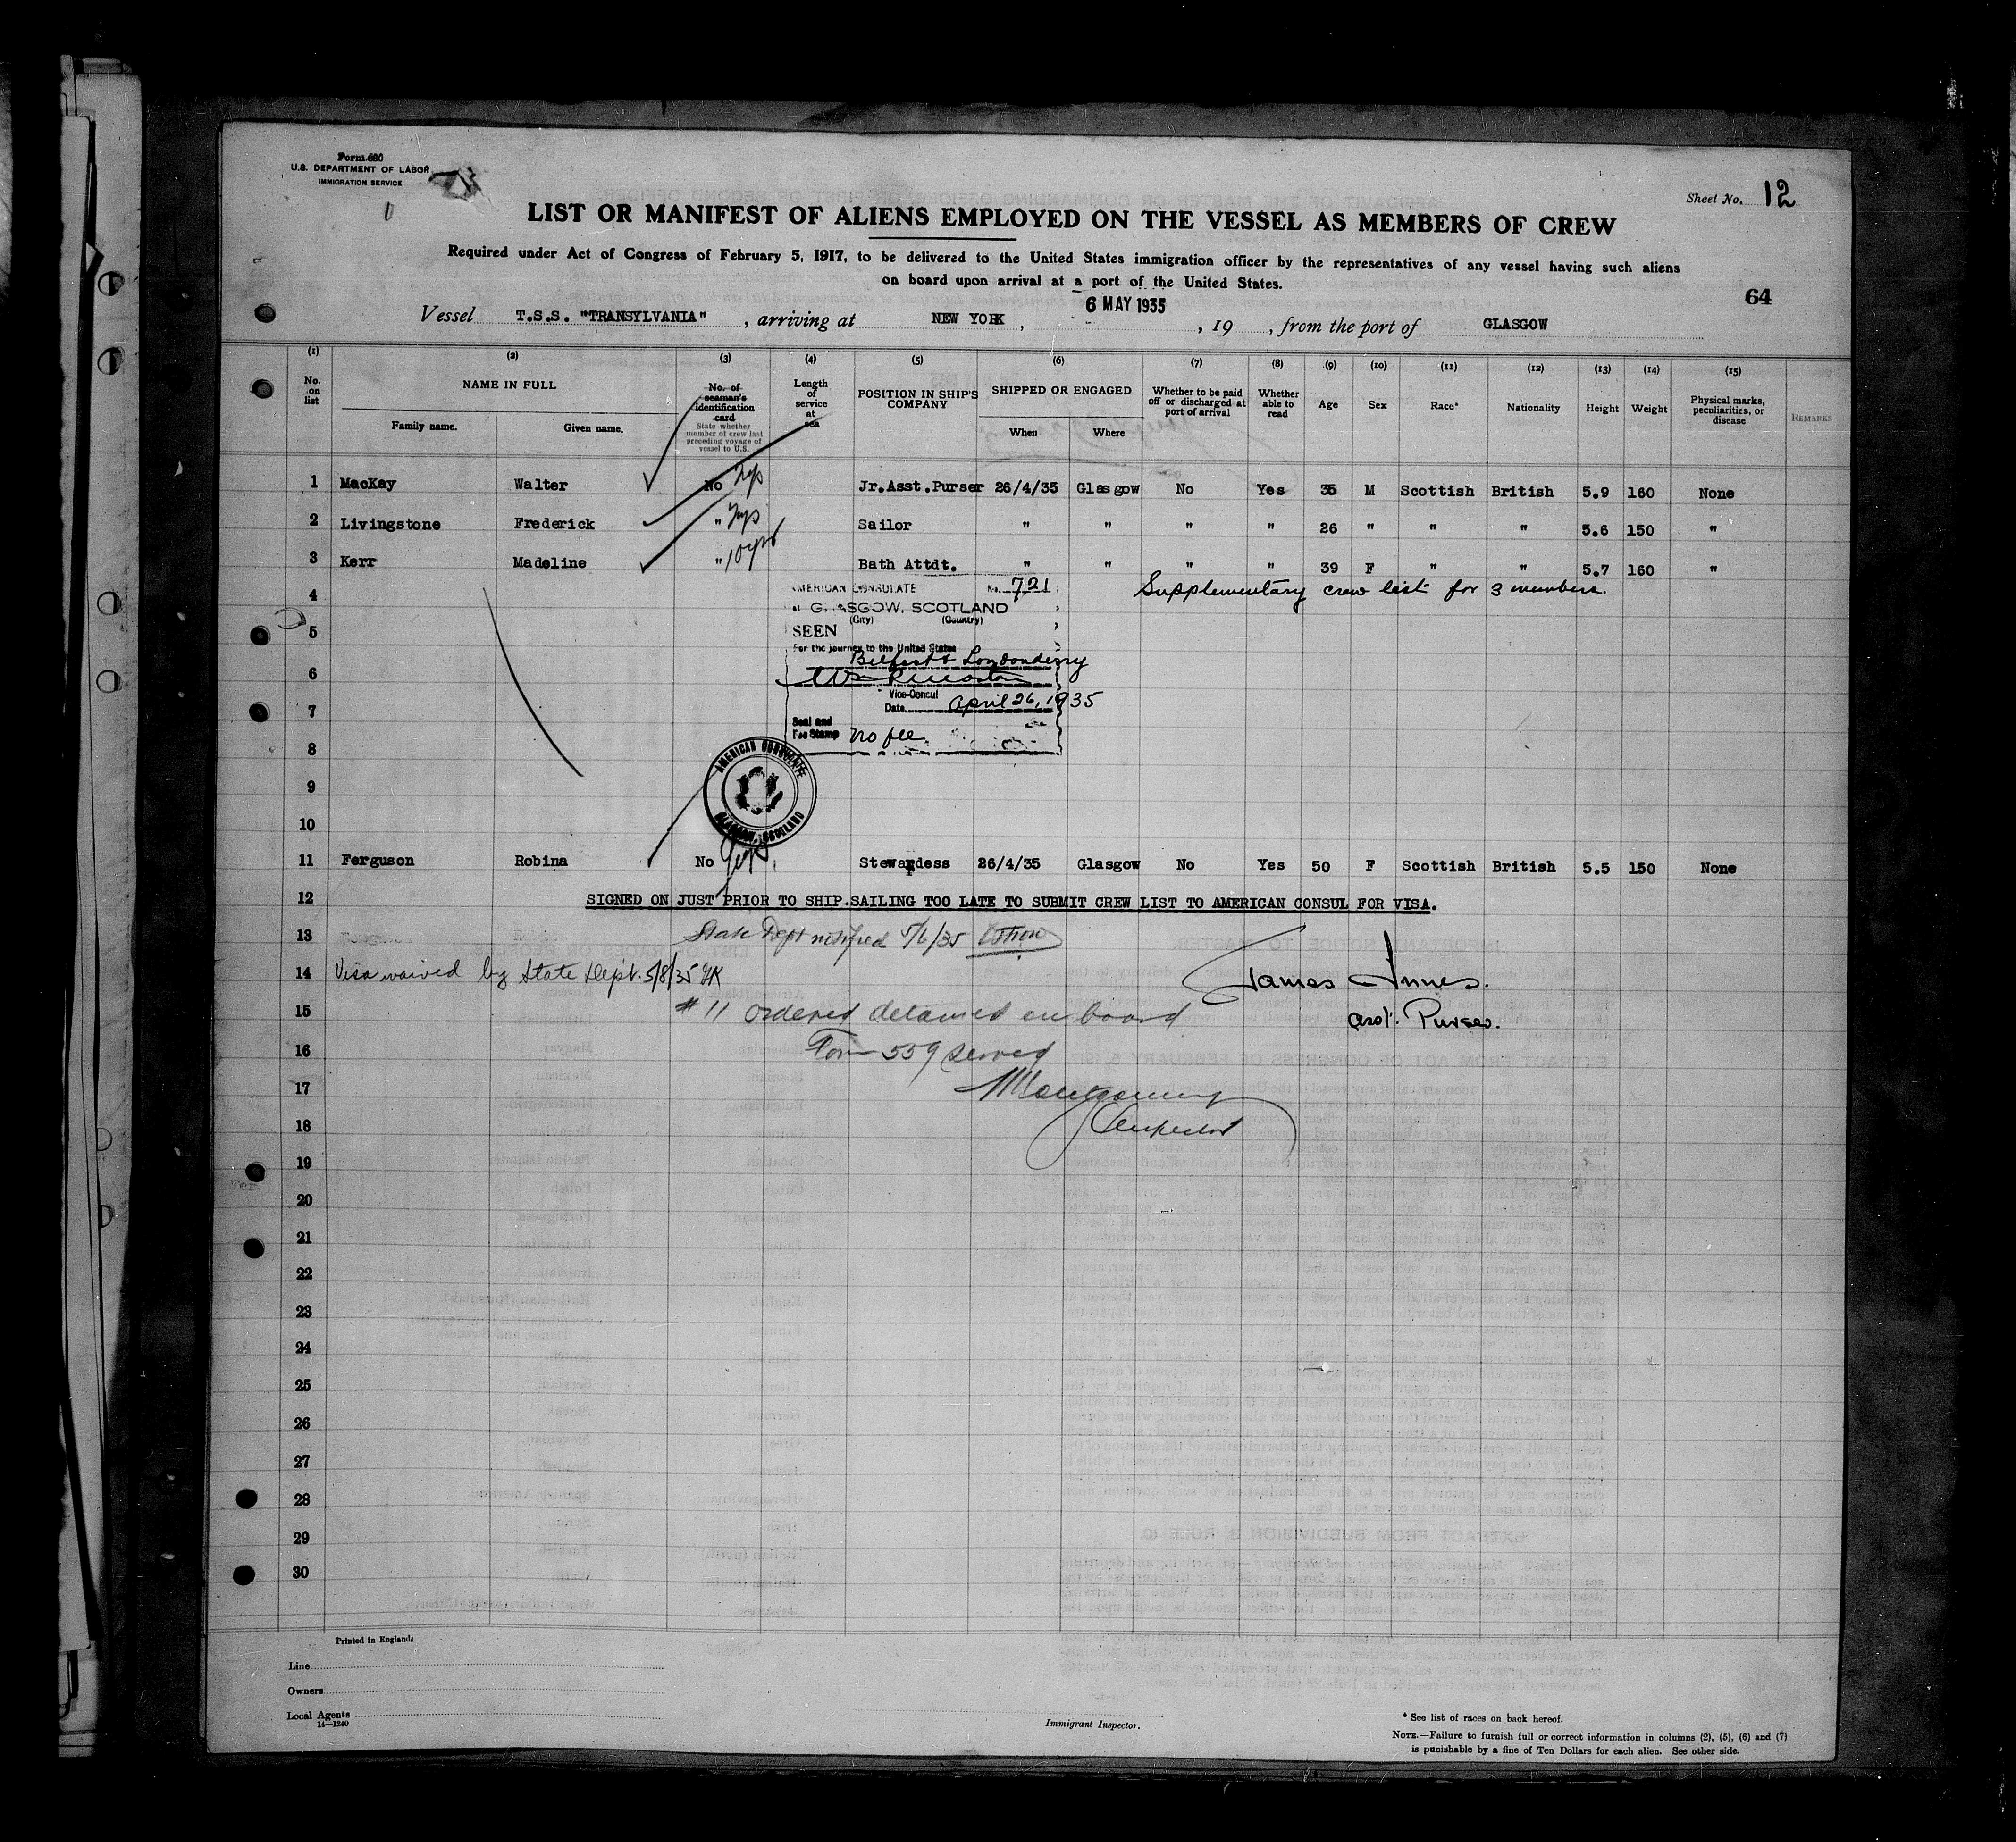 Form 680
U.S. DEPARTMENT OF LABOR
IMMIGRATION SERVICE
Sheet No. 12
LIST OR MANIFEST OF ALIENS EMPLOYED ON THE VESSEL AS MEMBERS OF CREW
Required under Act of Congress of February 5, 1917, to be delivered to the United States immigration officer by the representatives of any vessel having such aliens
on board upon arrival at a port of the United States.
64
6 MAY 1935
Vessel T.S.S. "TRANSYLVANIA" , arriving at NEW YORK , , 19 , from the port of GLASGOW
(1) (2) (3) (4) (5) (6) (7) (8) (9) (10) (11) (12) (13) (14) (15)
No. on list
NAME IN FULL
Family name. Given name.
No. of seaman's identification card
State whether member of crew last preceding voyage of vessel to U.S.
Length of service at sea
POSITION IN SHIP'S COMPANY
SHIPPED OR ENGAGED
When Where
Whether to be paid off or discharged at port of arrival
Whether able to read
Age Sex Race* Nationality Height Weight
Physical marks, peculiarities, or disease
REMARKS
1 MacKay Walter No Jr.Asst.Purser 26/4/35 Glasgow No Yes 35 M Scottish British 5.9 160 None
2 Livingstone Frederick " Sailor " " " " 26 " " " 5.6 150 "
3 Kerr Madeline " 10 yrs Bath Attdt. " " " " 39 F " " 5.7 160 "
4 Supplementary crew list for 3 members.
AMERICAN CONSULATE No. 721
at GLASGOW, SCOTLAND
(City) (Country)
5 SEEN
For the journey to the United States
Belfast & Londonderry
6
Vice-Consul
7 Date April 26, 1935
Seal and Fee Stamp No fee
8
AMERICAN CONSULATE
GLASGOW, SCOTLAND
9
10
11 Ferguson Robina No Stewardess 26/4/35 Glasgow No Yes 50 F Scottish British 5.5 150 None
12 SIGNED ON JUST PRIOR TO SHIP SAILING TOO LATE TO SUBMIT CREW LIST TO AMERICAN CONSUL FOR VISA.
13 State Dept notified 5/6/35
14 Visa waived by State Dept. 5/8/35 James Innes.
15 #11 ordered detained on board Asst. Purser.
16 Form 559 served
17 Montgomery
18 Inspector
19
20
21
22
23
24
25
26
27
28
29
30
Printed in England.
Line
Owners
Local Agents
14—1240
Immigrant Inspector.
* See list of races on back hereof.
NOTE.—Failure to furnish full or correct information in columns (2), (5), (6) and (7)
is punishable by a fine of Ten Dollars for each alien. See other side.